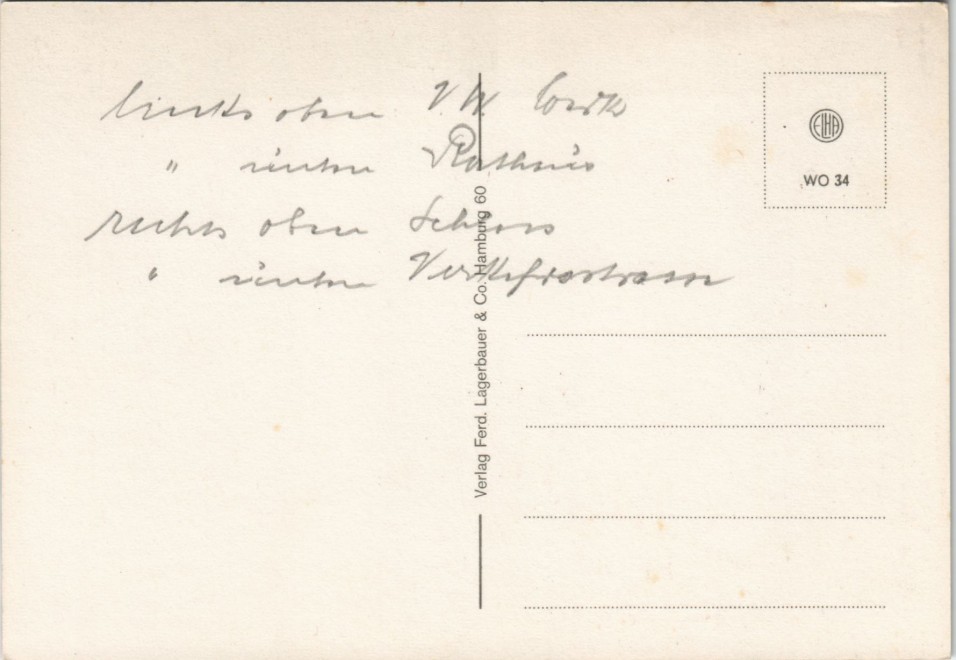 links oben V.W. Werk
" unten Rathaus
rechts oben Schloss
" unten Verkehrsstrasse
ELHA
WO 34
Verlag Ferd. Lagerbauer & Co. Hamburg 60